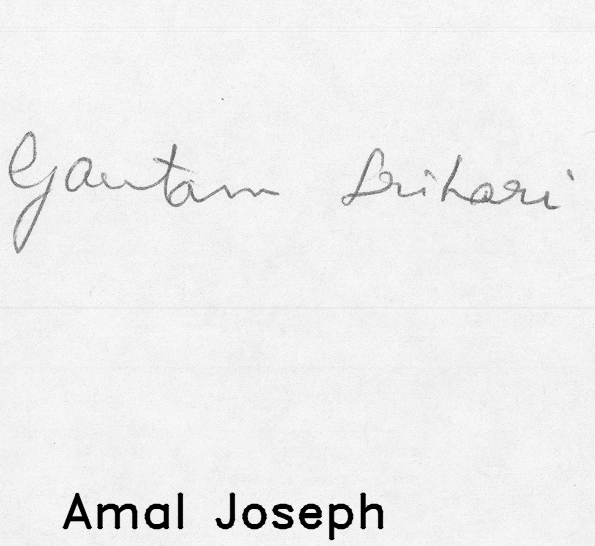 Gautam Srihari
Amal Joseph